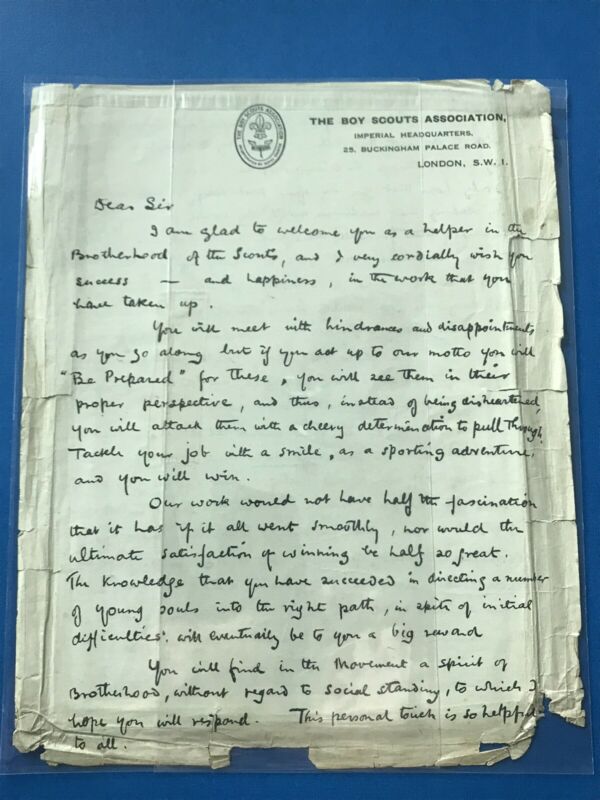 THE BOY SCOUTS ASSOCIATION
THE BOY SCOUTS ASSOCIATION,
IMPERIAL HEADQUARTERS,
25, BUCKINGHAM PALACE ROAD,
LONDON, S.W. 1.
Dear Sir
I am glad to welcome you as a helper in the
Brotherhood of the Scouts, and I very cordially wish you
success — and happiness, in the work that you
have taken up.
You will meet with hindrances and disappointments
as you go along but if you act up to our motto you will
"Be Prepared" for these, you will see them in their
proper perspective, and thus, instead of being disheartened,
you will attack them with a cheery determination to pull through.
Tackle your job with a smile, as a sporting adventure,
and you will win.
Our work would not have half the fascination
that it has if it all went smoothly, nor would the
ultimate satisfaction of winning be half so great.
The knowledge that you have succeeded in directing a number
of young souls into the right path, in spite of initial
difficulties, will eventually be to you a big reward
You will find in the Movement a spirit of
Brotherhood, without regard to social standing, to which I
hope you will respond. This personal touch is so helpful
to all.